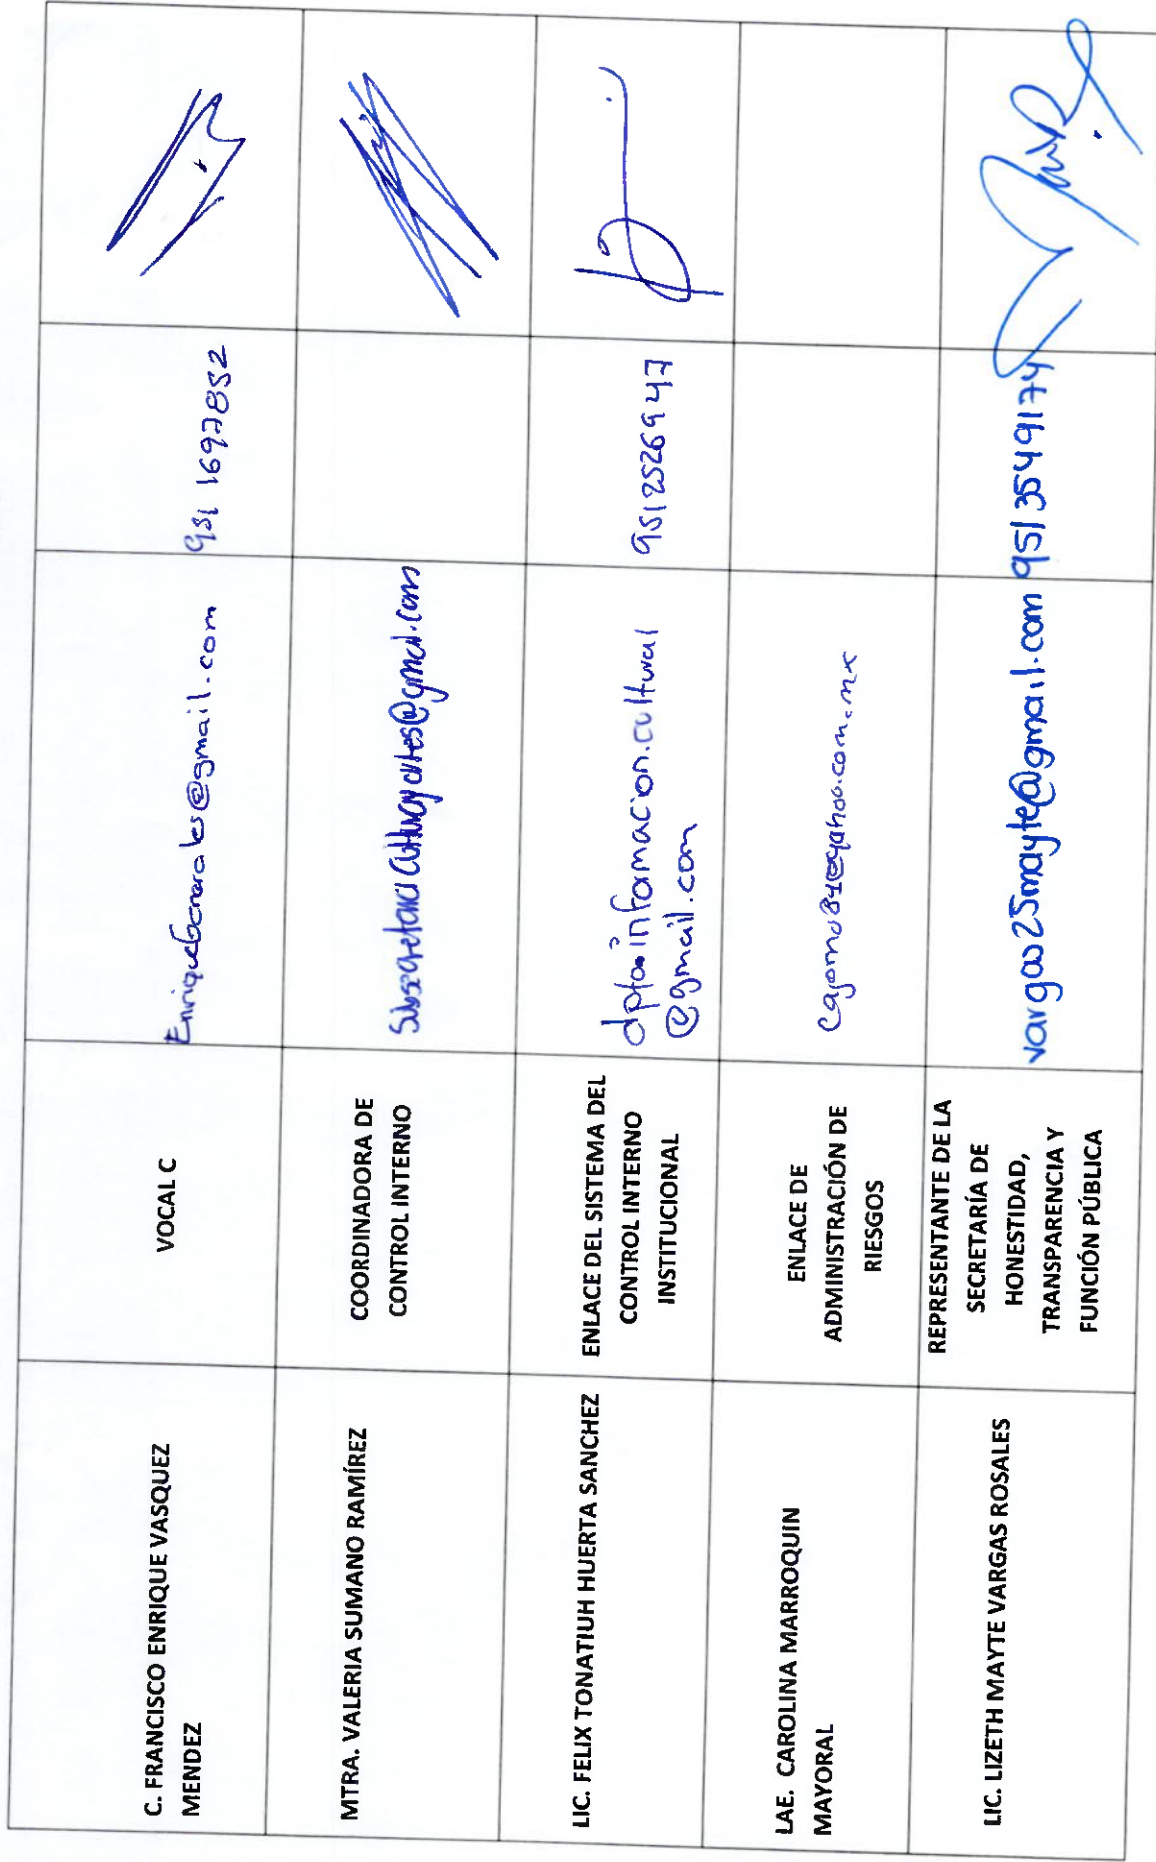 C. FRANCISCO ENRIQUE VASQUEZ
MENDEZ
VOCAL C
951 1697852
MTRA. VALERIA SUMANO RAMÍREZ
COORDINADORA DE
CONTROL INTERNO
Subsecretaria culturayartes@gmail.com
LIC. FELIX TONATIUH HUERTA SANCHEZ
ENLACE DEL SISTEMA DEL
CONTROL INTERNO
INSTITUCIONAL
dpto.informacion.cultural
@gmail.com
9512526947
LAE. CAROLINA MARROQUIN
MAYORAL
ENLACE DE
ADMINISTRACIÓN DE
RIESGOS
cajomo84@yahoo.com.mx
LIC. LIZETH MAYTE VARGAS ROSALES
REPRESENTANTE DE LA
SECRETARÍA DE
HONESTIDAD,
TRANSPARENCIA Y
FUNCIÓN PÚBLICA
vargas25mayte@gmail.com
9513549174